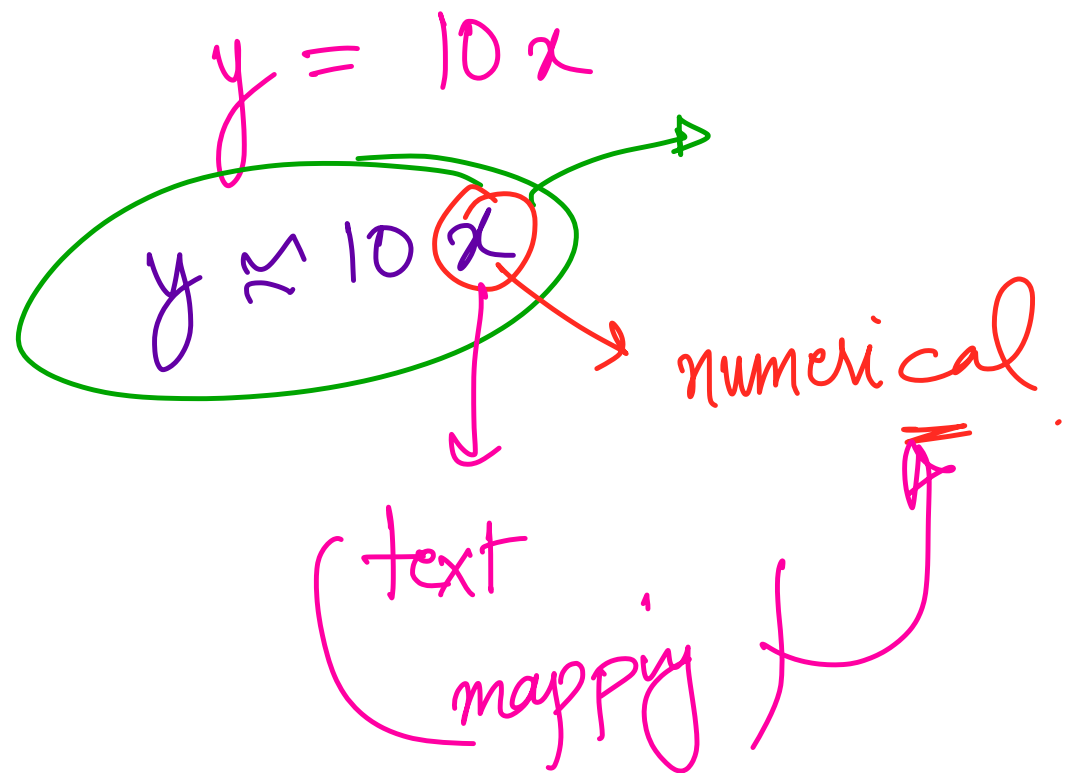 y = 10x
y ≈ 10x
numerical
text
mapping